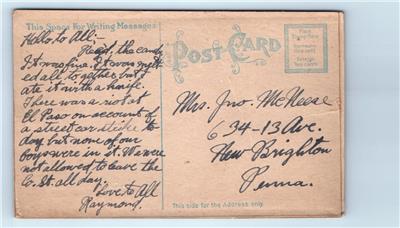 This Space For Writing Messages
Hello to All:-
Rec'd, the candy
It was fine. It was melt
ed all together but I
ate it with a knife.
There was a riot at
El Paso on account of
a street car strike to
day but none of our
boys were in it. We were
not allowed to leave the
Co. St. all day.
Love to All
Raymond.
POST CARD
Place
Stamp Here
Domestic
One cent
Foreign
Two cents
Mrs. Jno. McNeese
634-13 Ave.
New Brighton
Penna.
This side for the Address only